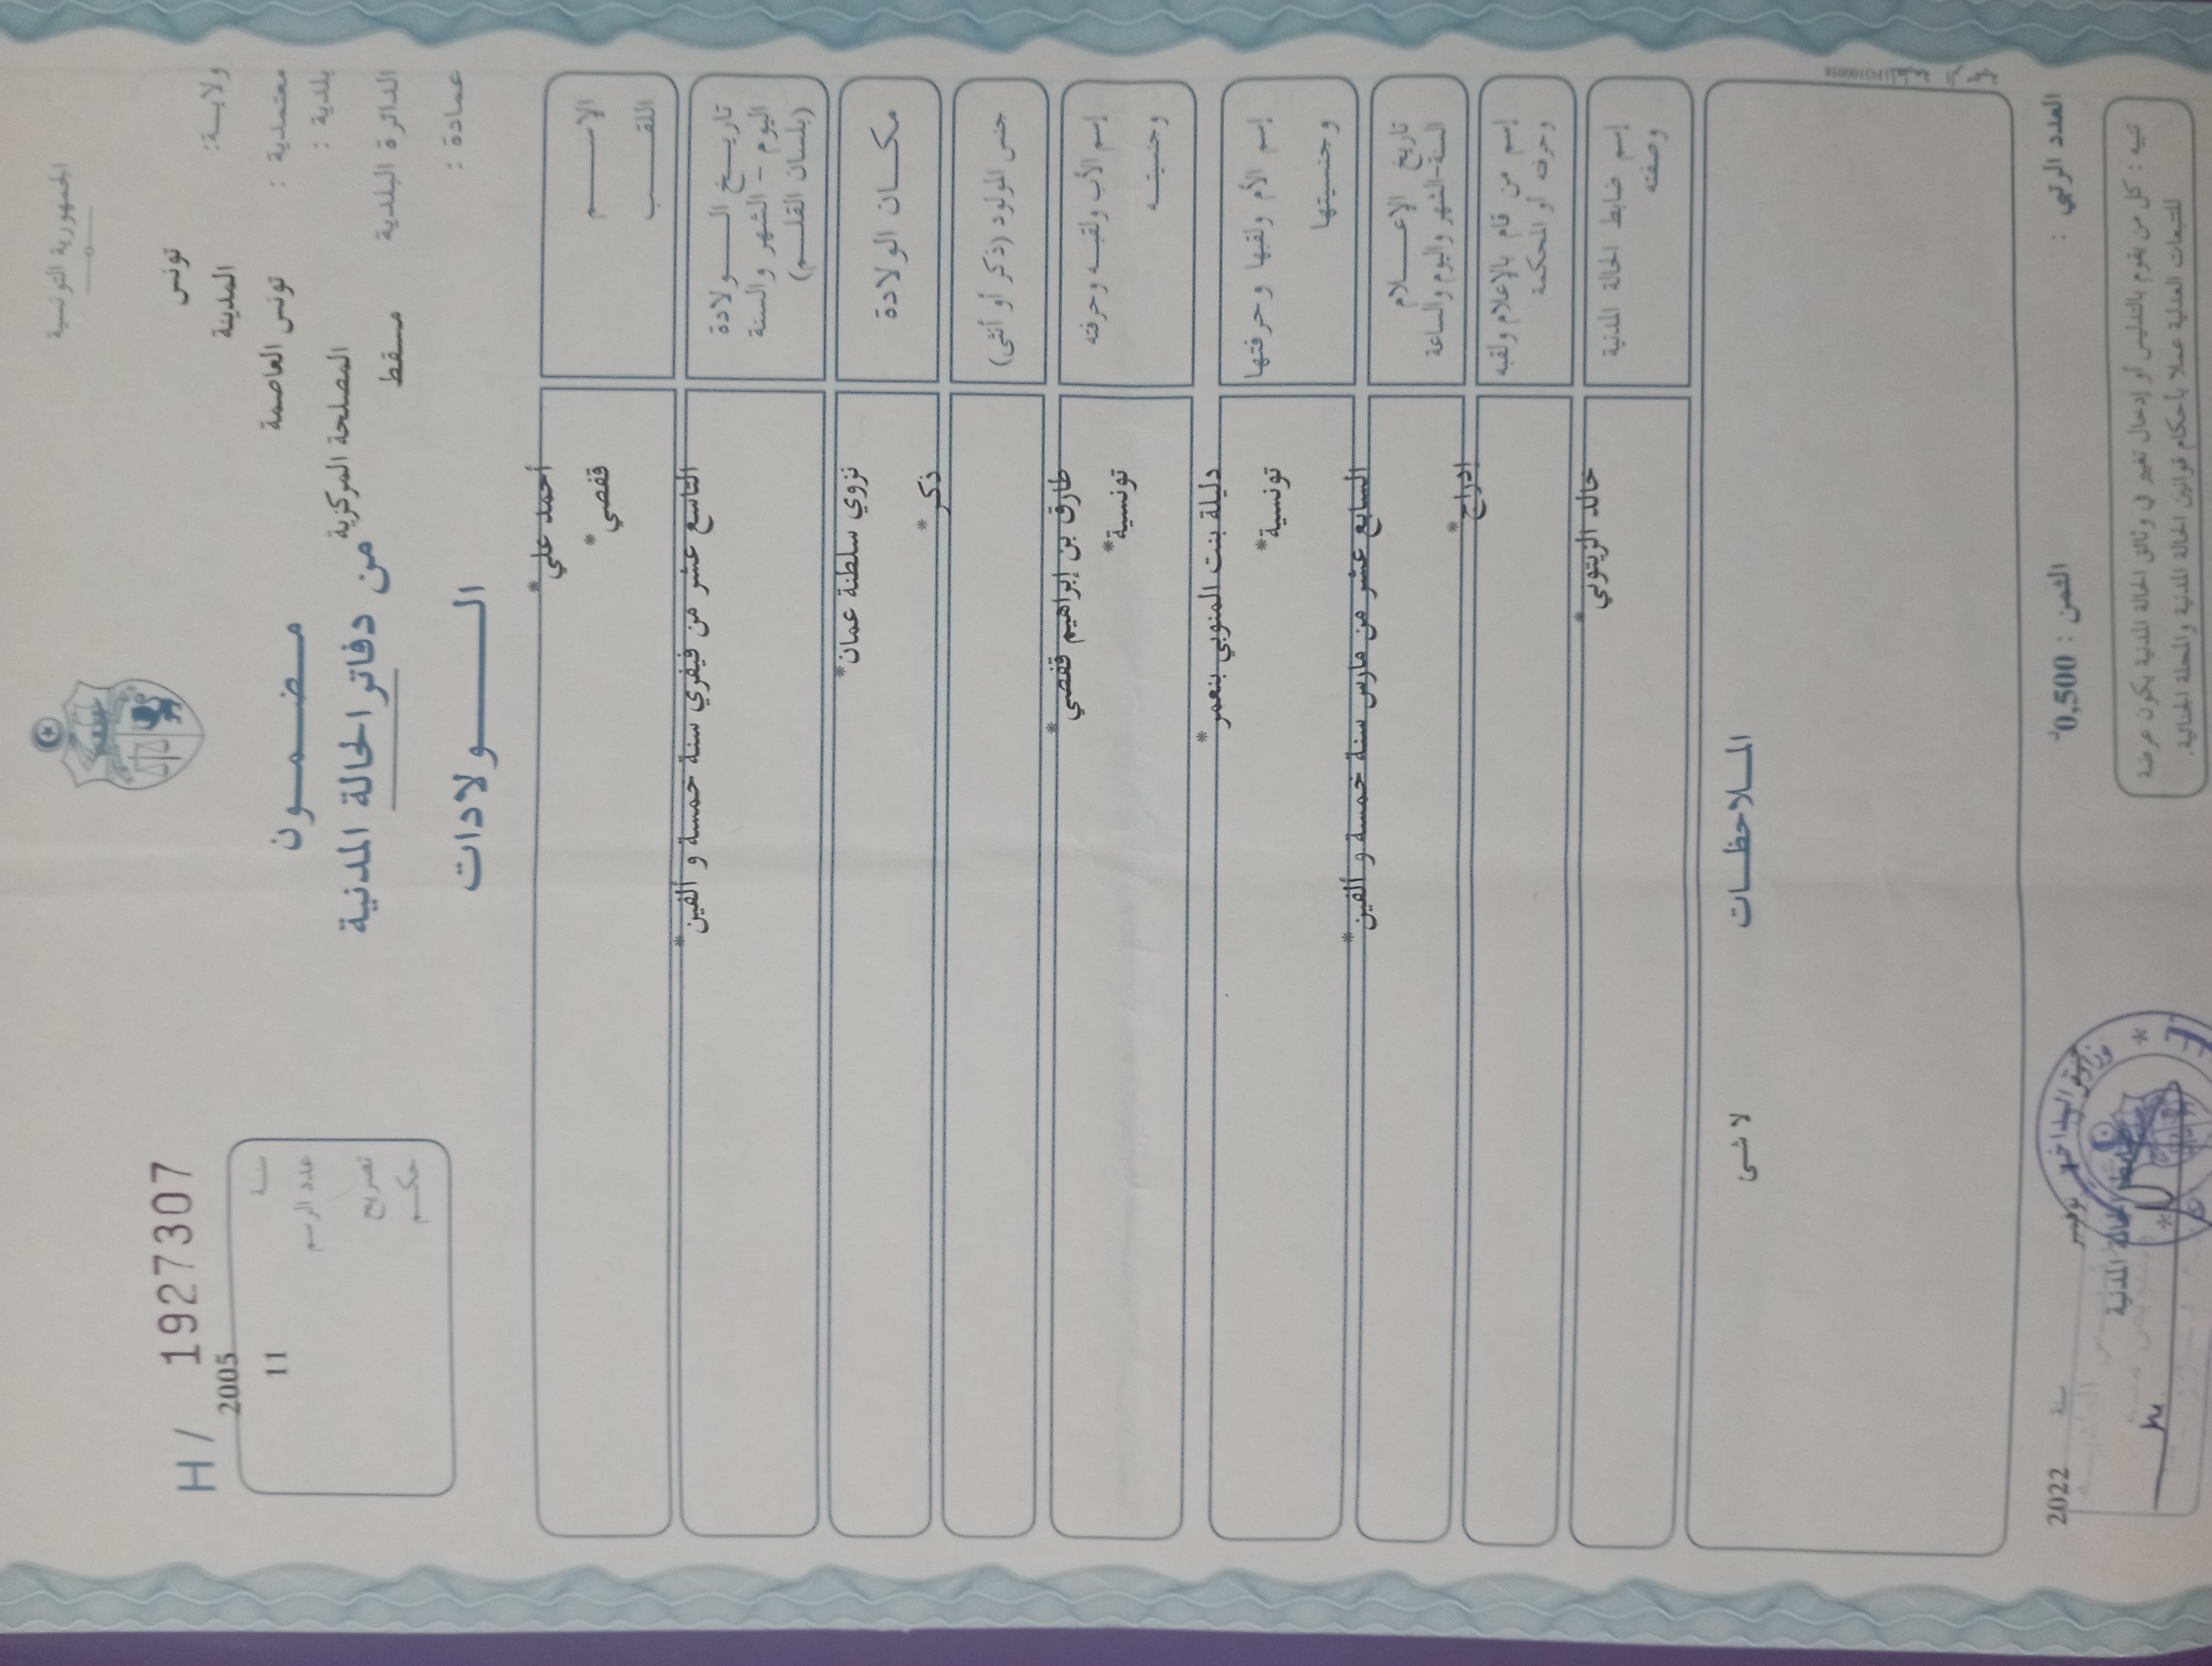 الجمهورية التونسية
ولايـة: تونس
المدينة
معتمدية : تونس العاصمة
بلدية :
المصلحة المركزية
الدائرة البلدية مسقط
عمادة :
H / 1927307
سنة 2005
عدد الرسم 11
تصريح
حكم
مضمون
من دفاتر الحالة المدنية
الولادات
الإسم أحمد علي *
اللقب قفصي *
تاريخ الولادة
اليوم - الشهر والسنة
(بلسان القلم)
التاسع عشر من فيفري سنة خمسة و ألفين *
مكان الولادة نزوي سلطنة عمان *
جنس المولود (ذكر أو أنثى) ذكر *
إسم الأب ولقبه وحرفته طارق بن إبراهيم قفصي *
وجنسيته تونسية *
إسم الأم ولقبها وحرفتها دليلة بنت المنوبي بنعمر *
وجنسيتها تونسية *
تاريخ الإعلام
السنة-الشهر واليوم والساعة
السابع عشر من مارس سنة خمسة و ألفين *
إسم من قام بالإعلام ولقبه
وحرفته أو المحكمة
إدراج *
إسم ضابط الحالة المدنية
وصفته
خالد الزيتوني *
الملاحظات
لا شئ
العدد الرتبي :
الثمن : 0,500د
سنة 2022
ضابط الحالة المدنية
تنبيه : كل من يقوم بالتدليس أو إدخال تغيير في وثائق الحالة المدنية يكون عرضة
للتتبعات العدلية عملا بأحكام قوانين الحالة المدنية والمجلة الجنائية.